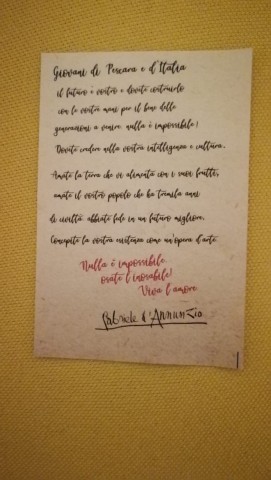 Giovani di Pescara e d'Italia
il futuro è vostro e dovete costruirlo
con le vostre mani per il bene delle
generazioni a venire nulla è impossibile!
Dovete credere nella vostra intelligenza e cultura.
Amate la terra che vi alimenta con i suoi frutti,
amate il vostro popolo che ha tremila anni
di civiltà abbiate fede in un futuro migliore.
Concepite la vostra esistenza come un'opera d'arte
Nulla è impossibile
osate l'inosabile!
Viva l'amore
Gabriele d'Annunzio